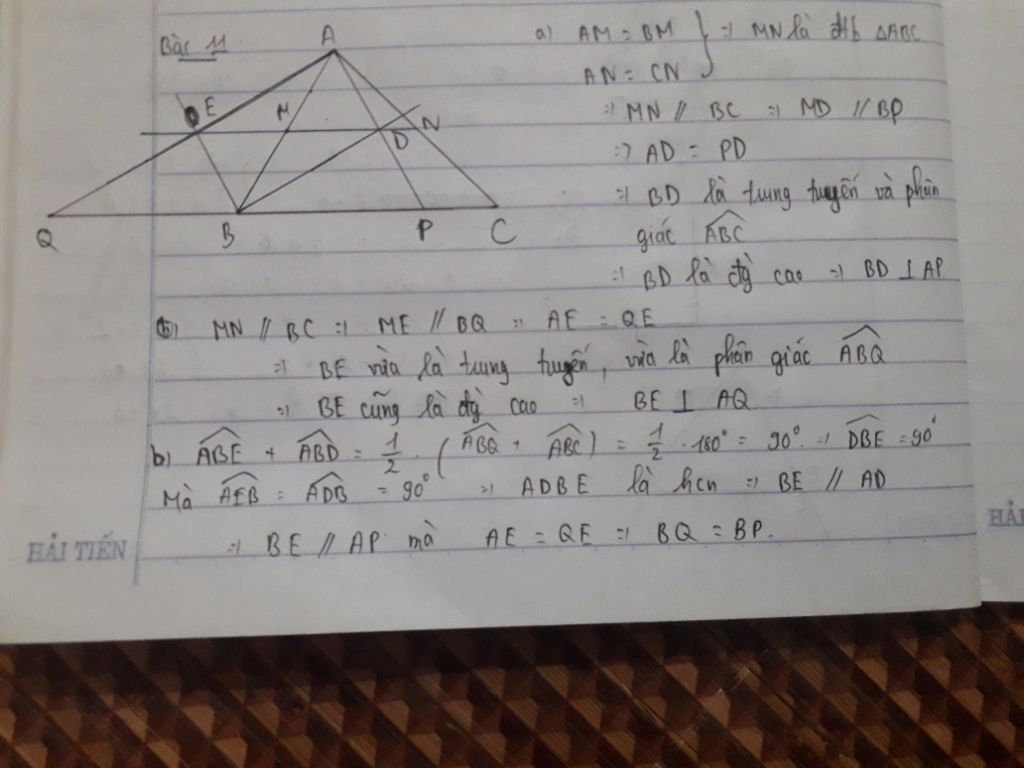 Bài 11
A
E
M
N
D
Q
B
P
C
a) AM = BM } => MN là đtb ΔABC
AN = CN
=> MN // BC => MD // BP
=> AD = PD
=> BD là trung tuyến và phân
giác \widehat{ABC}
=> BD là đg cao => BD ⊥ AP
b) MN // BC => ME // BQ => AE = QE
=> BE vừa là trung tuyến, vừa là phân giác \widehat{ABQ}
=> BE cũng là đg cao => BE ⊥ AQ
b) \widehat{ABE} + \widehat{ABD} = 1/2 . (\widehat{ABQ} + \widehat{ABC}) = 1/2 . 180° = 90° => \widehat{DBE} = 90°
Mà \widehat{AEB} = \widehat{ADB} = 90° => ADBE là hcn => BE // AD
=> BE // AP mà AE = QE => BQ = BP.
HẢI TIẾN
HẢI